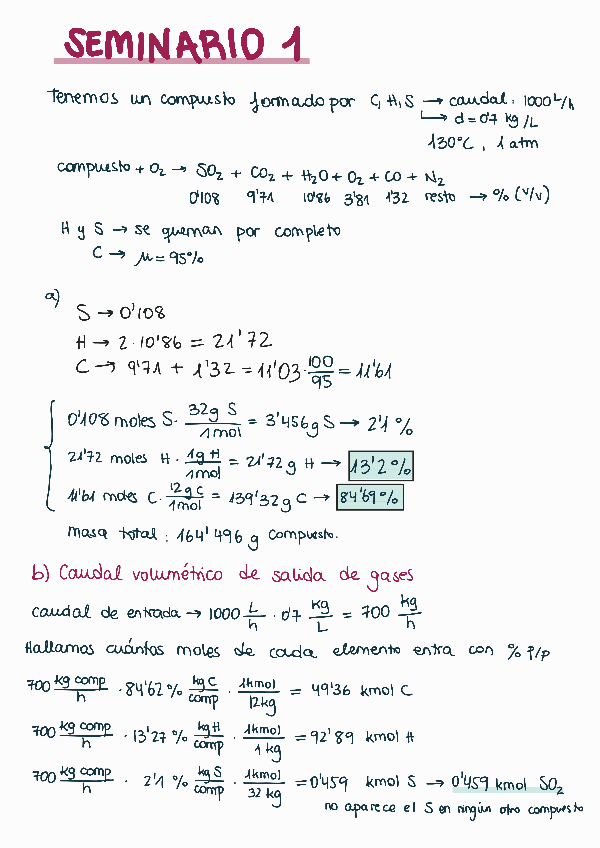 SEMINARIO 1
Tenemos un compuesto formado por C, H, S → caudal: 1000 L/h
↳ d = 0'7 kg/L
130°C, 1 atm
compuesto + O₂ → SO₂ + CO₂ + H₂O + O₂ + CO + N₂
0'108 9'71 10'86 3'81 1'32 resto → % (v/v)
H y S → se queman por completo
C → μ = 95%
a)
S → 0'108
H → 2 · 10'86 = 21'72
C → 9'71 + 1'32 = 11'03 · 100/95 = 11'61
0'108 moles S · 32g S/1mol = 3'456g S → 2'1 %
21'72 moles H · 1g H/1mol = 21'72 g H → 13'2%
11'61 moles C · 12g C/1mol = 139'32g C → 84'69%
masa total: 164'496 g compuesto.
b) Caudal volumétrico de salida de gases
caudal de entrada → 1000 L/h · 0'7 kg/L = 700 kg/h
Hallamos cuántos moles de cada elemento entra con % P/P
700 kg comp/h · 84'62% kg C/comp · 1kmol/12kg = 49'36 kmol C
700 kg comp/h · 13'27 % kg H/comp · 1kmol/1 kg = 92'89 kmol H
700 kg comp/h · 2'1 % kg S/comp · 1kmol/32 kg = 0'459 kmol S → 0'459 kmol SO₂
no aparece el S en ningún otro compuesto